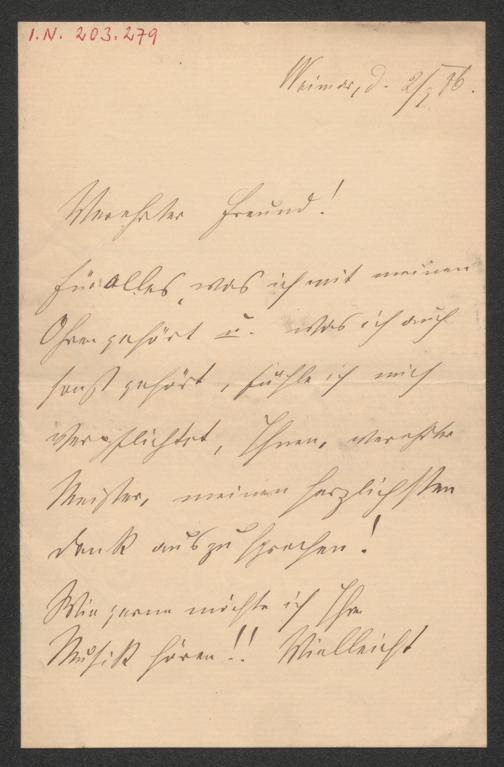 I.N. 203.279
Weimar, d. 2/5 86.
Verehrter Freund!
Für Alles, was ich mit meinen
Ohren gehört u. was ich auch
sonst gehört, fühle ich mich
verpflichtet, Ihnen, verehrter
Meister, meinen herzlichsten
Dank auszusprechen!
Wie gerne möchte ich Ihre
Musik hören!! Vielleicht